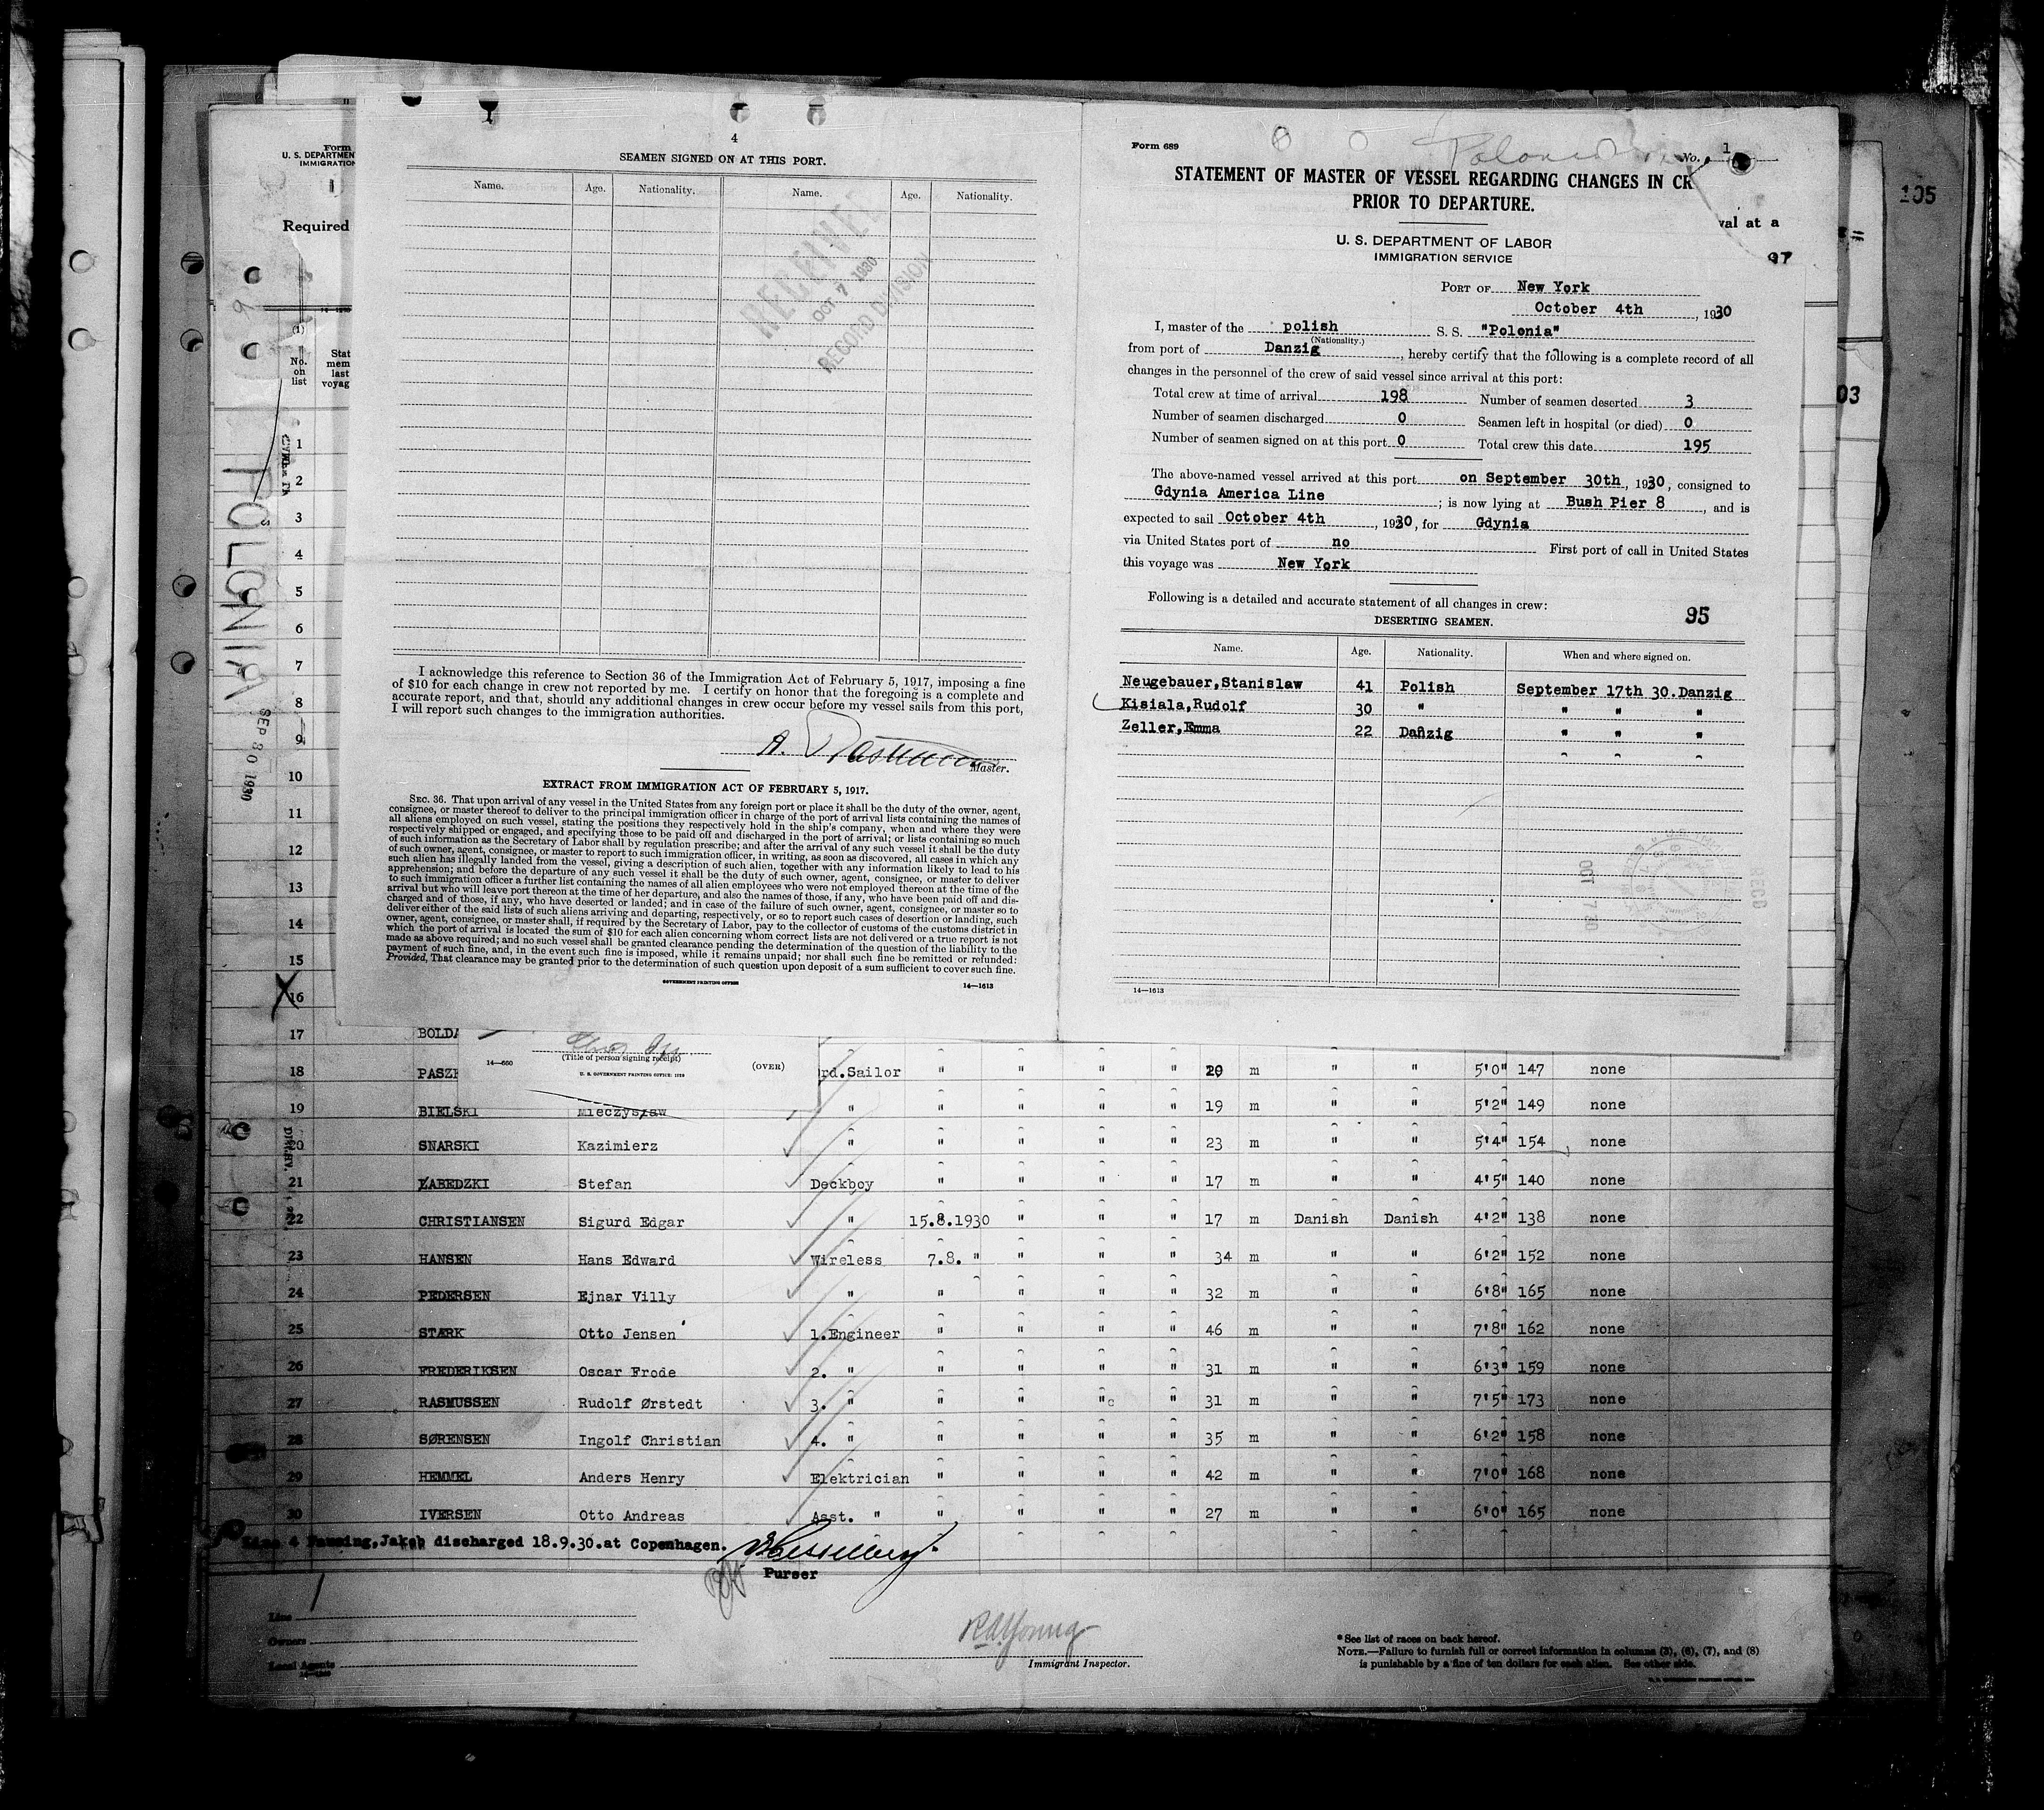 4
SEAMEN SIGNED ON AT THIS PORT.
Name. Age. Nationality. Name. Age. Nationality.
RECEIVED
OCT 7 1930
RECORD DIVISION
I acknowledge this reference to Section 36 of the Immigration Act of February 5, 1917, imposing a fine
of $10 for each change in crew not reported by me. I certify on honor that the foregoing is a complete and
accurate report, and that, should any additional changes in crew occur before my vessel sails from this port,
I will report such changes to the immigration authorities.
A. Rasmussen
Master.
EXTRACT FROM IMMIGRATION ACT OF FEBRUARY 5, 1917.
SEC. 36. That upon arrival of any vessel in the United States from any foreign port or place it shall be the duty of the owner, agent,
consignee, or master thereof to deliver to the principal immigration officer in charge of the port of arrival lists containing the names of
all aliens employed on such vessel, stating the positions they respectively hold in the ship's company, when and where they were
respectively shipped or engaged, and specifying those to be paid off and discharged in the port of arrival; or lists containing so much
of such information as the Secretary of Labor shall by regulation prescribe; and after the arrival of any such vessel it shall be the duty
of such owner, agent, consignee, or master to report to such immigration officer, in writing, as soon as discovered, all cases in which any
such alien has illegally landed from the vessel, giving a description of such alien, together with any information likely to lead to his
apprehension; and before the departure of any such vessel it shall be the duty of such owner, agent, consignee, or master to deliver
to such immigration officer a further list containing the names of all alien employees who were not employed thereon at the time of the
arrival but who will leave port thereon at the time of her departure, and also the names of those, if any, who have been paid off and dis-
charged and of those, if any, who have deserted or landed; and in case of the failure of such owner, agent, consignee, or master so to
deliver either of the said lists of such aliens arriving and departing, respectively, or so to report such cases of desertion or landing, such
owner, agent, consignee, or master shall, if required by the Secretary of Labor, pay to the collector of customs of the customs district in
which the port of arrival is located the sum of $10 for each alien concerning whom correct lists are not delivered or a true report is not
made as above required; and no such vessel shall be granted clearance pending the determination of the question of the liability to the
payment of such fine, and, in the event such fine is imposed, while it remains unpaid; nor shall such fine be remitted or refunded:
Provided, That clearance may be granted prior to the determination of such question upon deposit of a sum sufficient to cover such fine.
GOVERNMENT PRINTING OFFICE 14—1613
Form 689 Polonia No. 1
STATEMENT OF MASTER OF VESSEL REGARDING CHANGES IN CR
PRIOR TO DEPARTURE.
val at a
U. S. DEPARTMENT OF LABOR
IMMIGRATION SERVICE
97
PORT OF New York
October 4th, 1930
I, master of the polish S. S. "Polonia"
(Nationality.)
from port of Danzig, hereby certify that the following is a complete record of all
changes in the personnel of the crew of said vessel since arrival at this port:
Total crew at time of arrival 198 Number of seamen deserted 3
Number of seamen discharged 0 Seamen left in hospital (or died) 0
Number of seamen signed on at this port 0 Total crew this date 195
The above-named vessel arrived at this port on September 30th, 1930, consigned to
Gdynia America Line; is now lying at Bush Pier 8, and is
expected to sail October 4th, 1930, for Gdynia
via United States port of no First port of call in United States
this voyage was New York
Following is a detailed and accurate statement of all changes in crew:
95
DESERTING SEAMEN.
Name. Age. Nationality. When and where signed on.
Neugebauer,Stanislaw 41 Polish September 17th 30.Danzig
Kisiala,Rudolf 30 " " " "
Zeller,Emma 22 Danzig " " "
OCT 7 30
REC'D
14—1613
105
03
Form
U. S. DEPARTMEN
IMMIGRATION
Required
(1)
No. on list
Stat mem last voyag
POLONIA
SEP 30 1930
1
2
3
4
5
6
7
8
9
10
11
12
13
14
15
X 16
17 BOLDA
14—660
(Title of person signing receipt)
U. S. GOVERNMENT PRINTING OFFICE: 1929
(OVER)
18 PASZK rd.Sailor " " " " 20 m " " 5'0" 147 none
19 BIELSKI Mieczyslaw " " " " " 19 m " " 5'2" 149 none
20 SNARSKI Kazimierz " " " " " 23 m " " 5'4" 154 none
21 ŁABEDZKI Stefan Deckboy " " " " 17 m " " 4'5" 140 none
22 CHRISTIANSEN Sigurd Edgar " 15.8.1930 " " " 17 m Danish Danish 4'2" 138 none
23 HANSEN Hans Edward Wireless 7.8. " " " " 34 m " " 6'2" 152 none
24 PEDERSEN Ejnar Villy " " " " " 32 m " " 6'8" 165 none
25 STÆRK Otto Jensen 1.Engineer " " " " 46 m " " 7'8" 162 none
26 FREDERIKSEN Oscar Frode 2. " " " " " 31 m " " 6'3" 159 none
27 RASMUSSEN Rudolf Ørstedt 3. " " " " " 31 m " " 7'5" 173 none
28 SØRENSEN Ingolf Christian 4. " " " " " 35 m " " 6'2" 158 none
29 HEMMEL Anders Henry Elektrician " " " " 42 m " " 7'0" 168 none
30 IVERSEN Otto Andreas Asst. " " " " " 27 m " " 6'0" 165 none
Line 4 Jakob discharged 18.9.30.at Copenhagen.
Purser
Line
Owners
Local Agents
R.A. Young
Immigrant Inspector.
* See list of races on back hereof.
NOTE.—Failure to furnish full or correct information in columns (3), (6), (7), and (8)
is punishable by a fine of ten dollars for each alien. See other side.